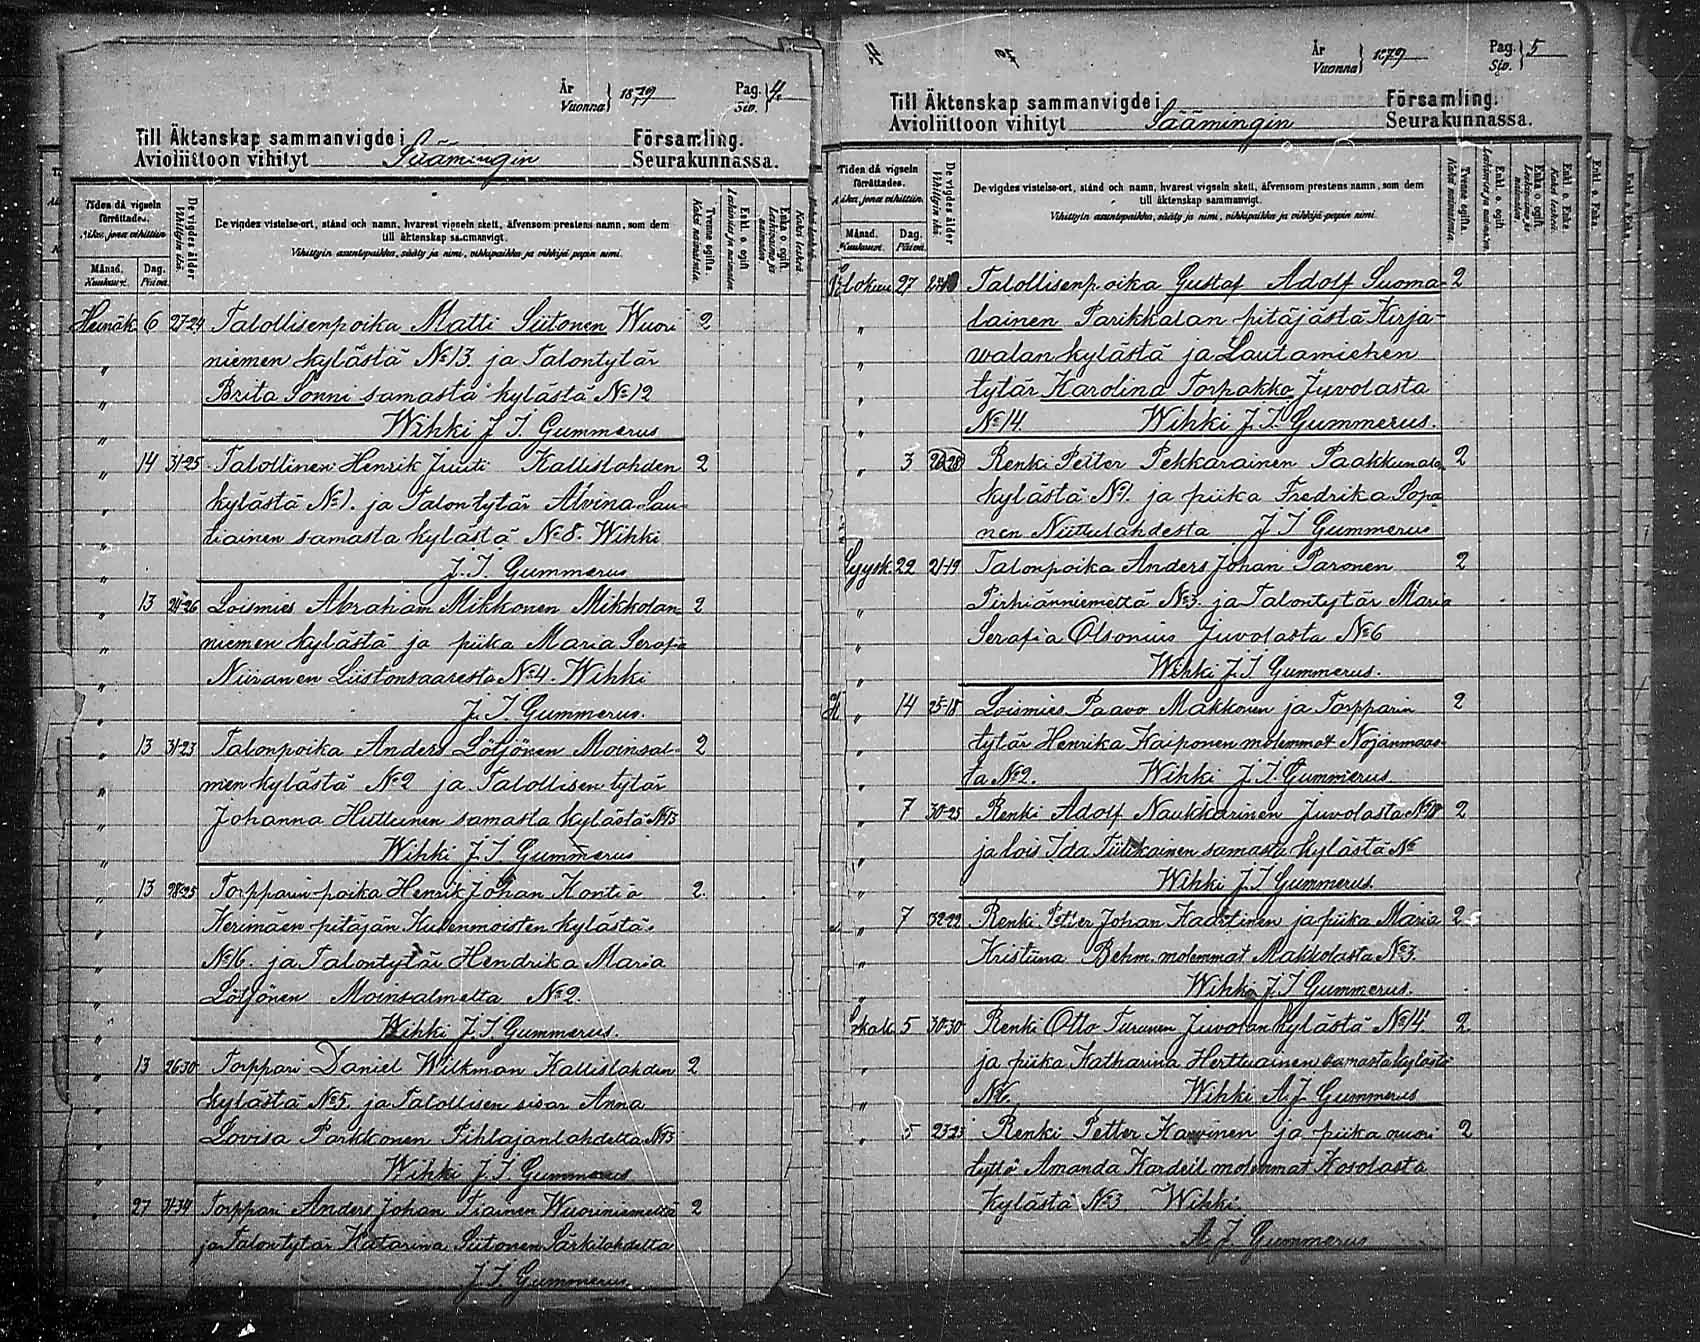 År Vuonna } 1879 Pag. Siv. } 4.
Till Äktenskap sammanvigde i Församling.
Avioliittoon vihityt Säämingin Seurakunnassa.
Tiden då vigseln förrättades.
Aika, jona vihittiin
Månad. Kuukausi. Dag. Päivä.
De vigdes ålder
Vihittyin ikä.
De vigdes vistelse-ort, stånd och namn, hvarest vigseln skett, äfvensom prestens namn, som dem
till äktenskap sammanvigt.
Vihittyin asuntopaikka, sääty ja nimi, vihkipaikka ja vihkijä-papin nimi.
Tvenne ogifta.
Kaksi naimatonta.
Heinäk 6 27-24 Talollisenpoika Matti Siitonen Wuori 2
niemen kylästä No 13. ja Talontytär
Brita Sonni samasta kylästä No 12
Wihki J. I. Gummerus
14 31-25 Talollinen Henrik Juuti Kallislahden 2
kylästä No 1. ja Talontytär Alvina Lau-
tiainen samasta kylästä No 8. Wihki
J. I. Gummerus
13 24-26 Loismies Abraham Mikkonen Mikkolan 2
niemen kylästä ja piika Maria Serafia
Niiranen Liistonsaaresta No 4. Wihki
J. I. Gummerus.
13 31-23 Talonpoika Anders Lötjönen Moinsal- 2
men kylästä No 2 ja Talollisen tytär
Johanna Huttunen samasta kylästä No 3
Wihki J. I. Gummerus
13 28-25 Torpparin poika Henrik Johan Kontia 2.
Kerimäen pitäjän Kuvenmoisten kylästä
No 16. ja Talontytär Hendrika Maria
Lötjönen Moinsalmelta No 2.
Wihki J. I. Gummerus.
13 26-30 Torppari Daniel Wilkman Kallislahden 2
kylästä No 5. ja Talollisen sisar Anna
Lovisa Parkkonen Pihlajanlahdelta No 3
Wihki J. I. Gummerus
27 Torppari Anders Johan Tiainen Wuoriniemeltä 2
ja Talontytär Katarina Siitonen Särkilahdelta
J. I. Gummerus
År Vuonna } 1879 Pag. Siv. } 5
Till Äktenskap sammanvigde i Församling.
Avioliittoon vihityt Säämingin Seurakunnassa.
Tiden då vigseln förrättades.
Aika, jona vihittiin
Månad. Kuukausi. Dag. Päivä.
De vigdes ålder
Vihittyin ikä.
De vigdes vistelse-ort, stånd och namn, hvarest vigseln skett, äfvensom prestens namn, som dem
till äktenskap sammanvigt.
Vihittyin asuntopaikka, sääty ja nimi, vihkipaikka ja vihkijä-papin nimi.
Tvenne ogifta.
Kaksi naimatonta.
Elokuu 27 Talollisenpoika Gustaf Adolf Suoma- 2
lainen Parikkalan pitäjästä Kirja-
walan kylästä ja Lautamiehen
tytär Karolina Torpakko Juvolasta
No 14. Wihki J. I. Gummerus.
3 Renki Petter Pekkarainen Paakkunala 2
kylästä No 1. ja piika Fredrika Sopa-
nen Niittulahdesta J. I Gummerus
Syysk. 22 21-19 Talonpoika Anders Johan Paronen 2
Pirhiänniemeltä No 3. ja Talontytär Maria
Serafia Olsonius Juvolasta No 6
Wihki J. I. Gummerus.
14 25-18 Loismies Paavo Makkonen ja Torpparin 2
tytär Henrika Kaiponen molemmat Nojanmaas-
ta No 2. Wihki J. I. Gummerus
7 30-25 Renki Adolf Naukkarinen Juvolasta 2
ja lois Ida Tiilikainen samasta kylästä No 6
Wihki J. I Gummerus.
7 32-22 Renki Petter Johan Kaartinen ja piika Maria 2
Kristiina Behm. molemmat Makkolasta No 3.
Wihki J. I Gummerus.
Lokak 5 30-30 Renki Otto Turunen Juvolan kylästä No 14 2
ja piika Katharina Herttuainen samasta kylästä
No 6. Wihki A. J Gummerus
5 23-23 Renki Petter Karvinen ja piika nuori 2
tyttö Amanda Kardeil molemmat Kosolasta
kylästä No 3 Wihki
A. J. Gummerus